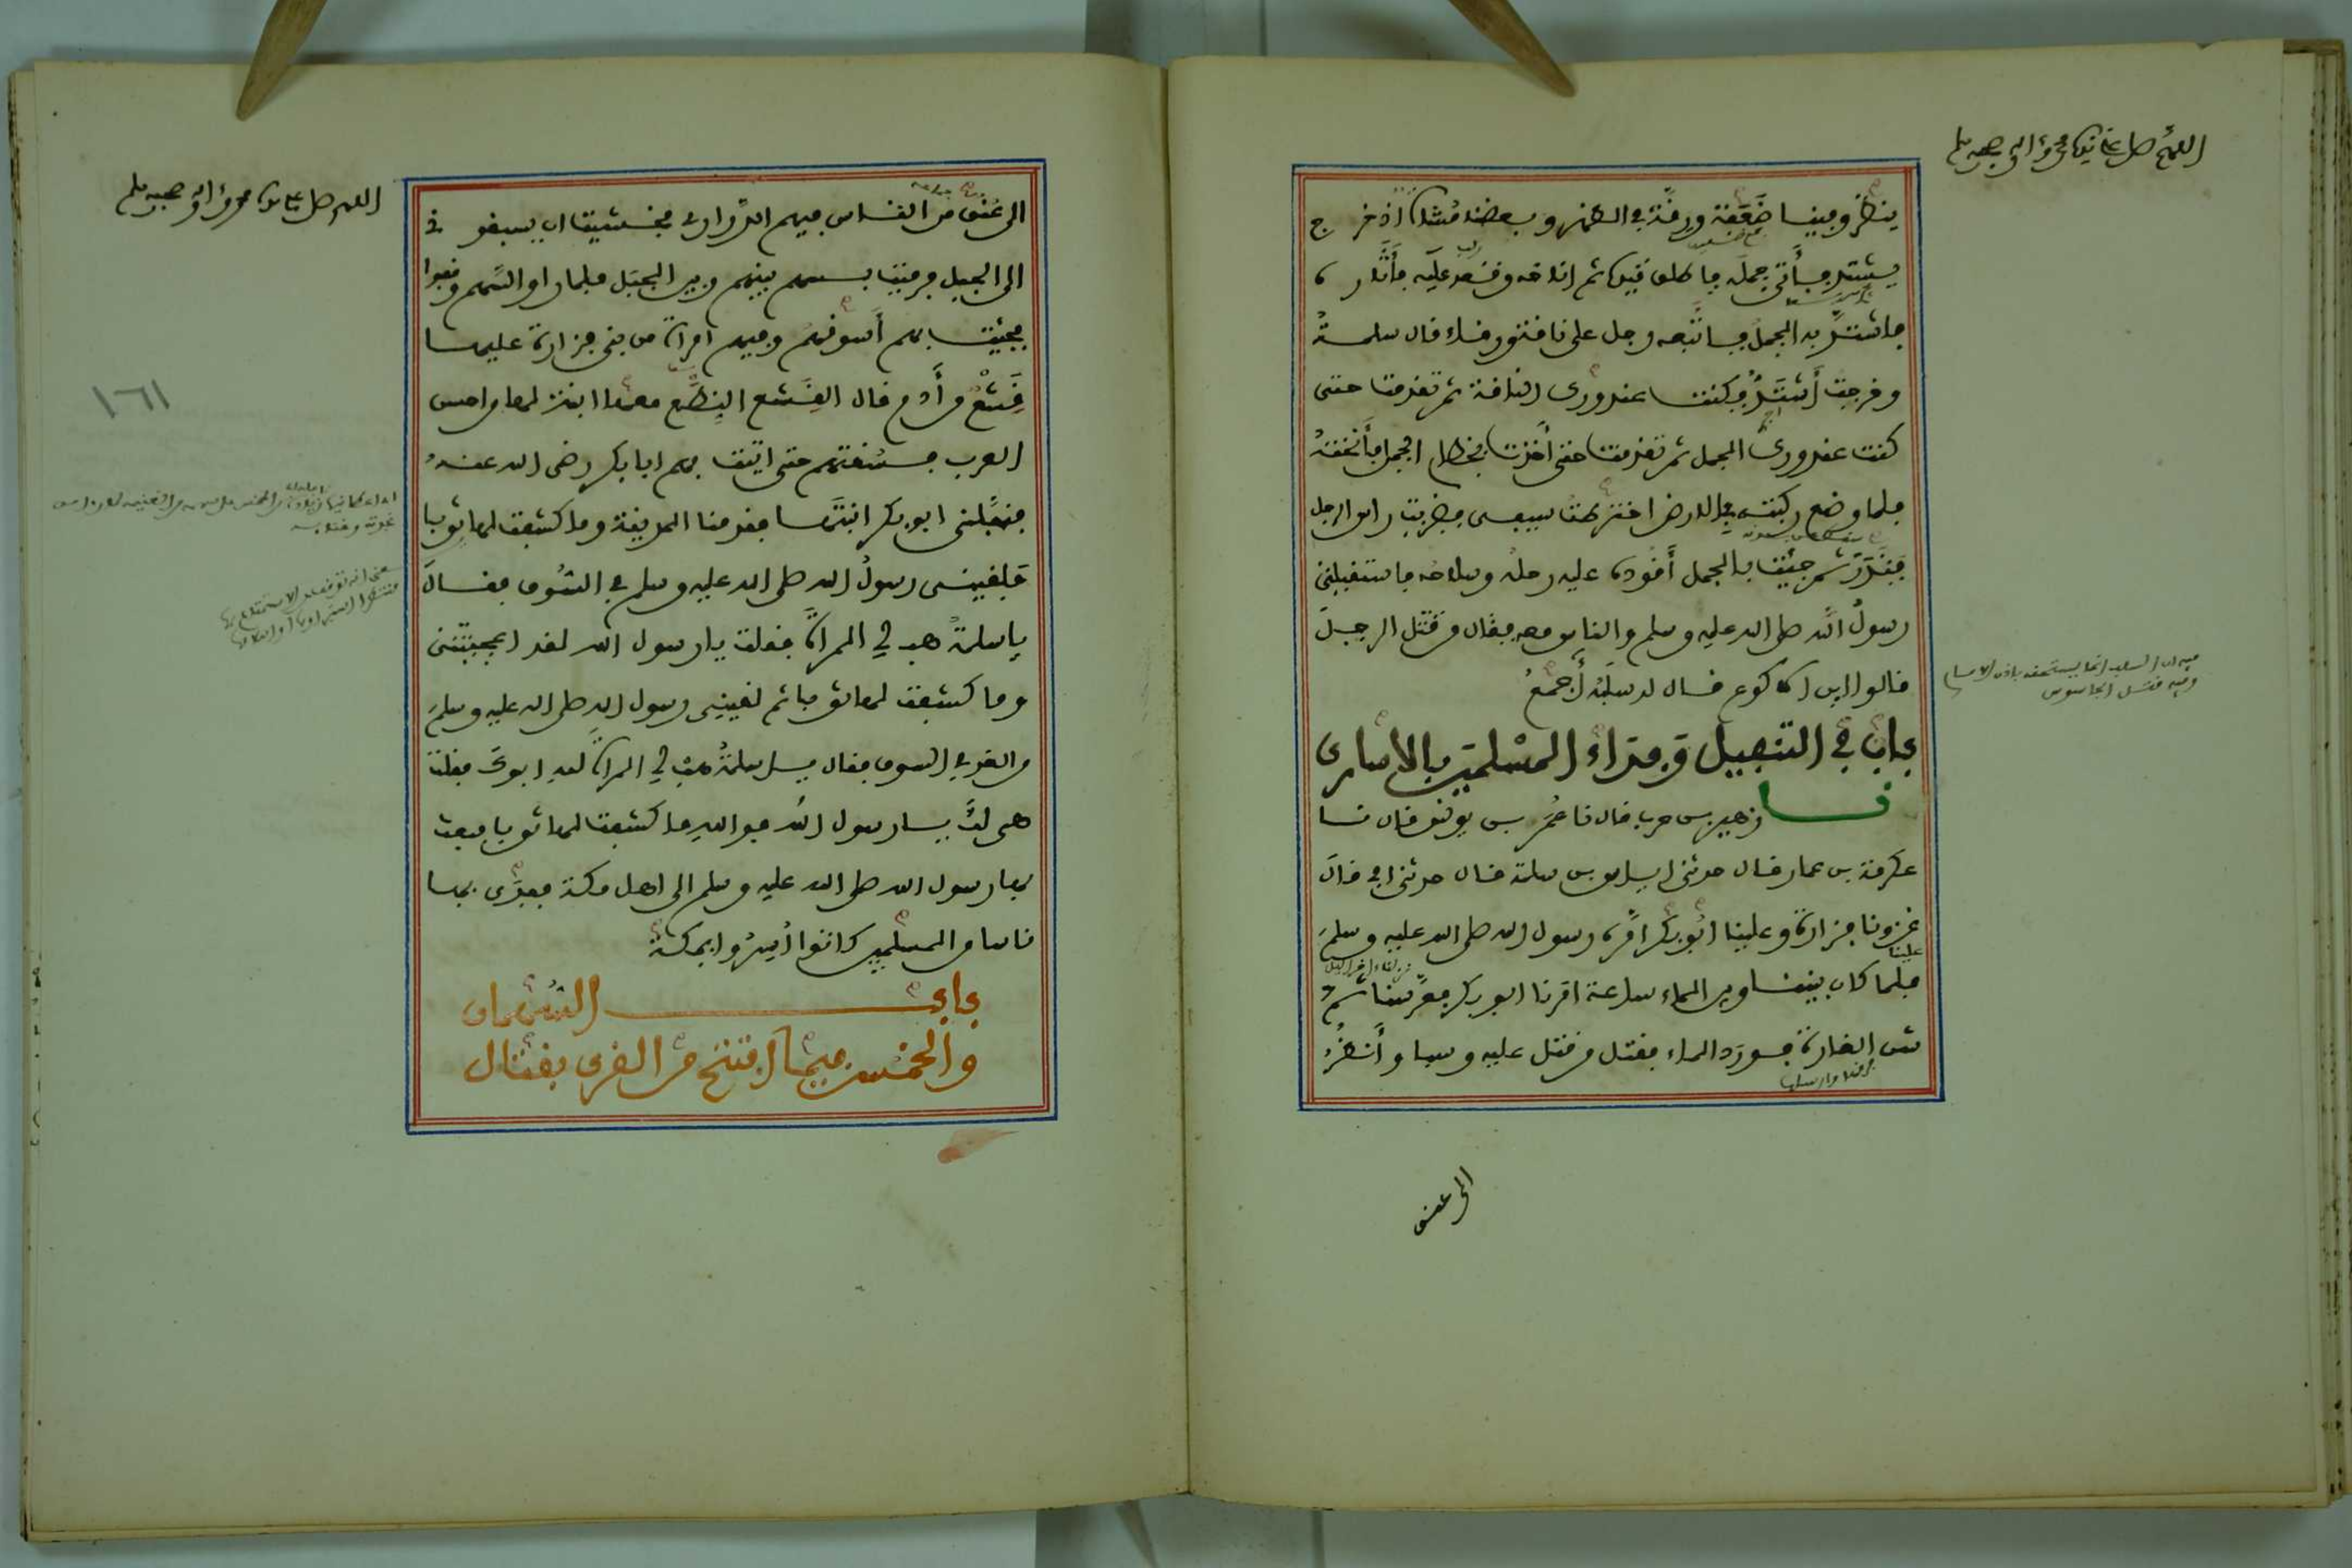 اللهم صل على سيدنا محمد وآله وصحبه وسلم
ينظر وفينا ضعفة ورقة في الظهر وبعضنا مشاة اذ خرج
يشتد فأتى جمله فاطلق قيده ثم اناخه وقعد عليه فأثاره
فاشتد به الجمل فاتبعه رجل على ناقة ورقاء قال سلمة
وخرجت أشتد فكنت عند ورك الناقة ثم تقدمت حتى
كنت عند ورك الجمل ثم تقدمت حتى أخذت بخطام الجمل فأنخته
فلما وضع ركبته في الارض اخترطت سيفي فضربت راس الرجل
فندر ثم جئت بالجمل أقوده عليه رحله وسلاحه فاستقبلني
رسول الله صلى الله عليه وسلم والناس معه فقال من قتل الرجل
قالوا ابن الاكوع قال له سلبه أجمع
فيه ان السلب انما يستحقه باذن الامام
وفيه قتل الجاسوس
باب في التنفيل وفداء المسلمين بالاسارى
نا زهير بن حرب قال نا عمر بن يونس قال نا
عكرمة بن عمار قال حدثني اياس بن سلمة قال حدثني ابي قال
غزونا فزارة وعلينا ابو بكر امره رسول الله صلى الله عليه وسلم
علينا
فلما كان بيننا وبين الماء ساعة امرنا ابو بكر فعرسنا ثم
شن الغارة فورد الماء فقتل من قتل عليه وسبا وأنظر
الى عنق
اللهم صل على سيدنا محمد وآله وصحبه وسلم
الى عنق من الناس فيهم الذراري فخشيت ان يسبقوني
الى الجبل فرميت بسهم بينهم وبين الجبل فلما راوا السهم وقفوا
فجئت بهم أسوقهم وفيهم امراة من بني فزارة عليها
قشع من أدم قال القشع النطع معها ابنة لها من احسن
١٦١
العرب فسقتهم حتى اتيت بهم ابا بكر رضي الله عنه
فنفلني ابو بكر ابنتها فقدمنا المدينة وما كشفت لها ثوبا
فلقيني رسول الله صلى الله عليه وسلم في السوق فقال
يا سلمة هب لي المراة فقلت يا رسول الله لقد اعجبتني
وما كشفت لها ثوبا ثم لقيني رسول الله صلى الله عليه وسلم
من الغد في السوق فقال يا سلمة هب لي المراة لله ابوك فقلت
هي لك يا رسول الله فوالله ما كشفت لها ثوبا فبعث
بها رسول الله صلى الله عليه وسلم الى اهل مكة ففدى بها
ناسا من المسلمين كانوا أسروا بمكة
باب السهمان
والخمس فيما افتتح من القرى بقتال